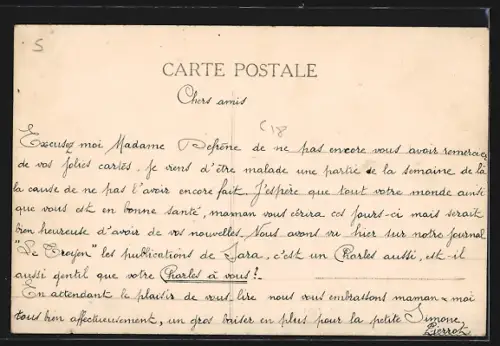 5
CARTE POSTALE
Chers amis
C18
Excusez moi Madame Defrêne de ne pas encore vous avoir remercier
de vos jolies cartes. Je viens d'être malade une partie de la semaine de là
la cause de ne pas l'avoir encore fait. J'espère que tout votre monde ainsi
que vous est en bonne santé, maman vous écrira ces jours-ci mais serait
bien heureuse d'avoir de vos nouvelles. Nous avons vu hier sur notre journal
"Le Troyen" les publications de Sara, c'est un Charles aussi, est-il
aussi gentil que votre Charles à vous!
En attendant le plaisir de vous lire nous vous embrassons maman & moi
tous bien affectueusement, un gros baiser en plus pour la petite Simone
Pierrot